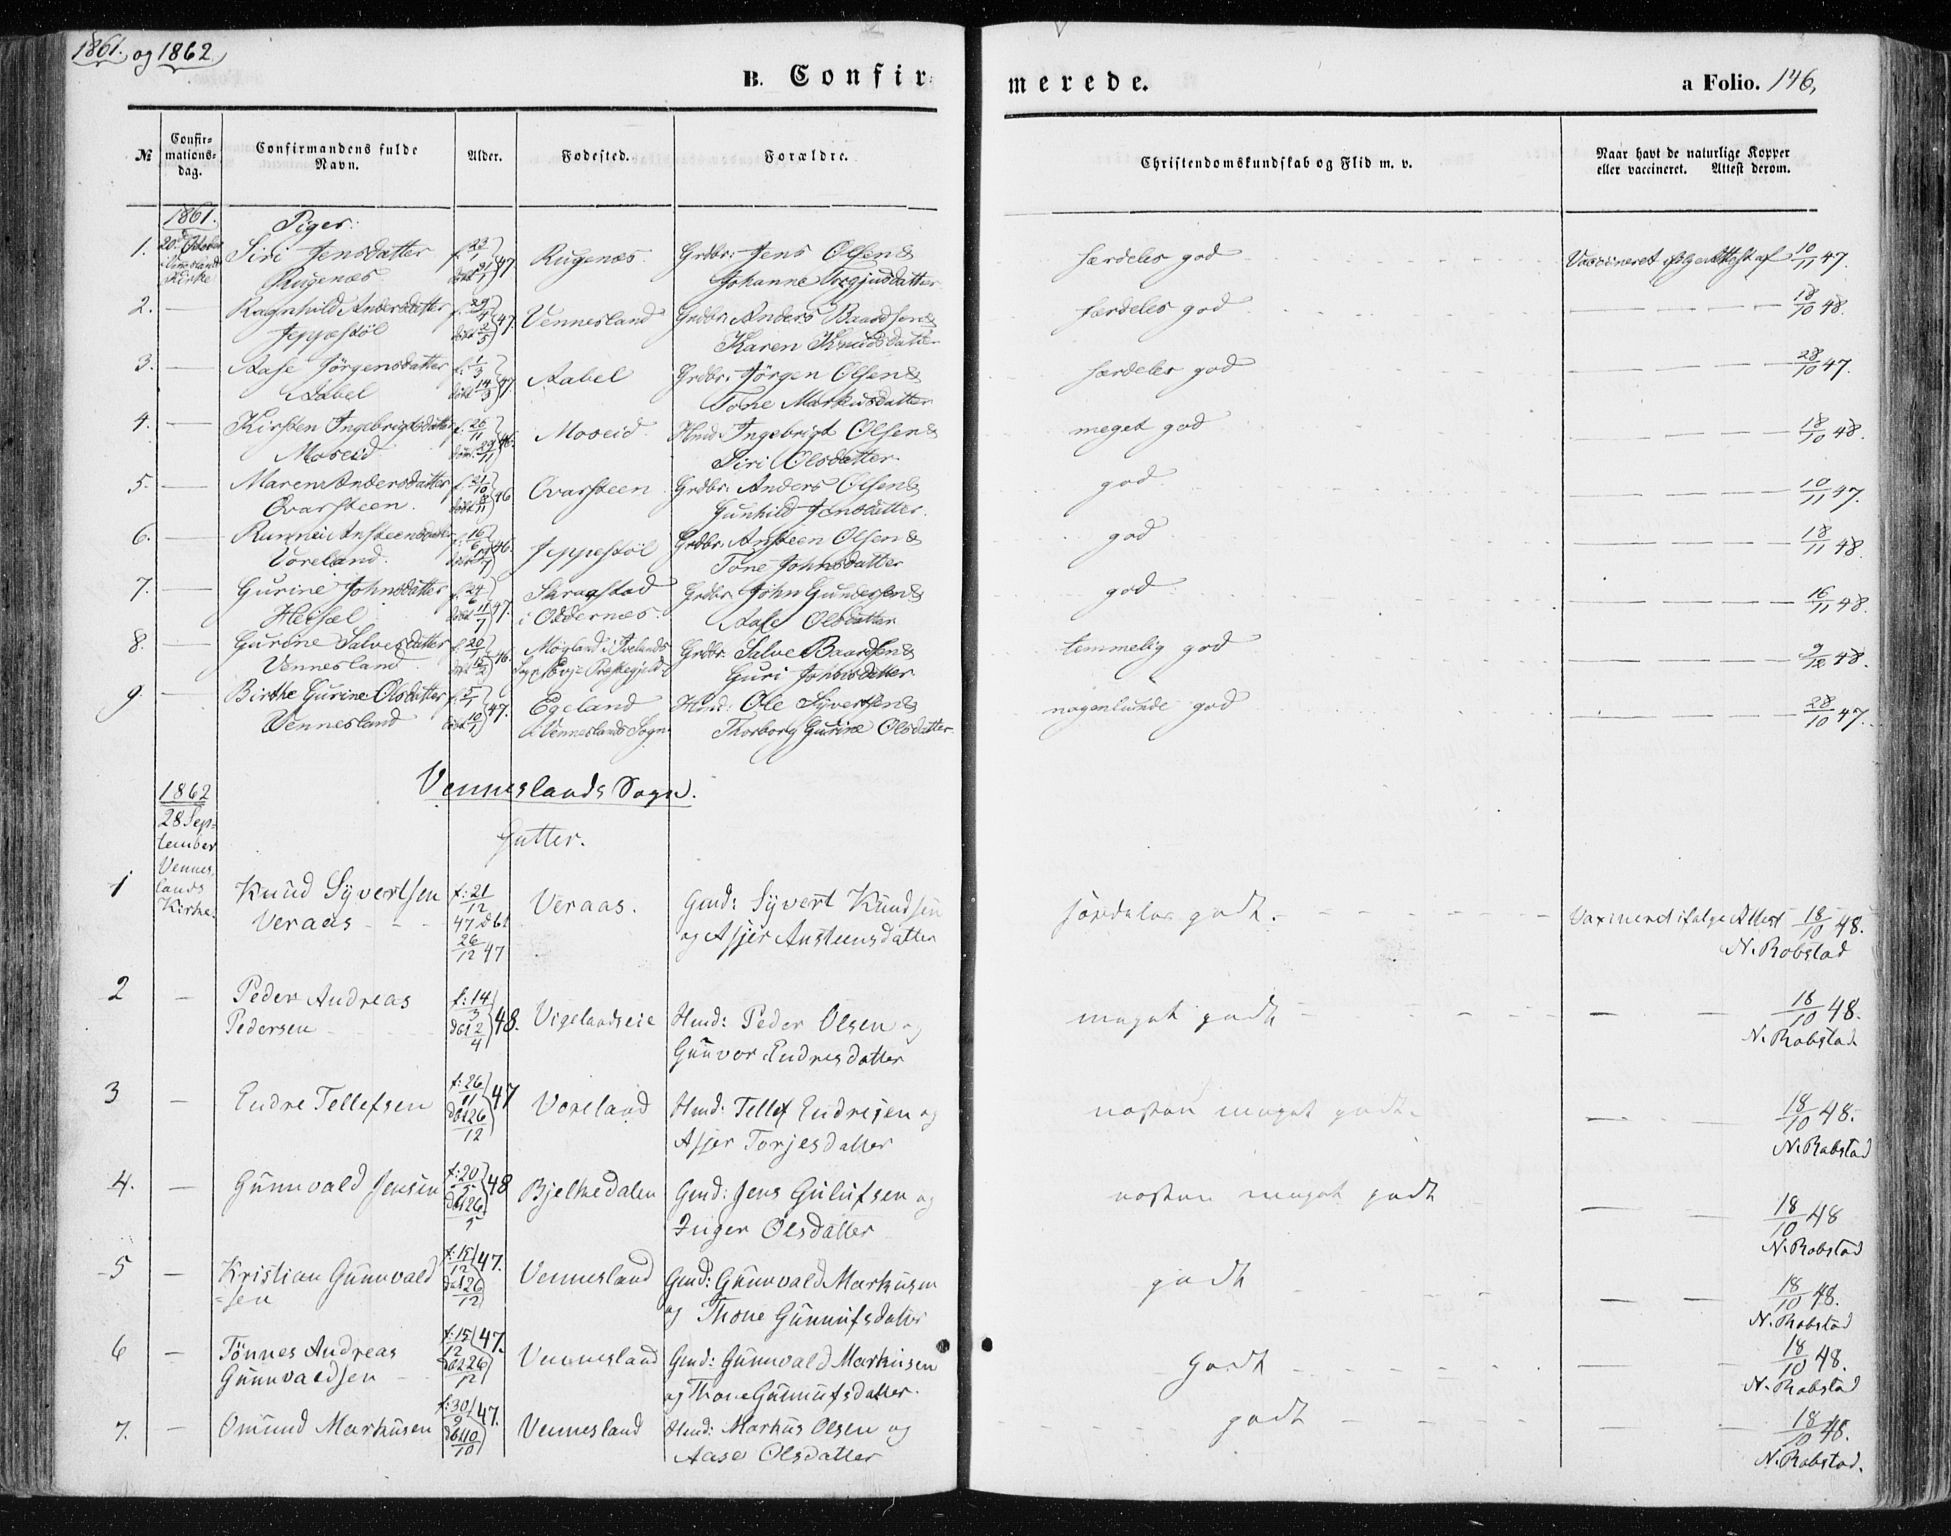 1861. og 1862
B. Confir-
merede.
a Folio. 146,
№
Confir-
mations-
dag.
Confirmandens fulde
Navn.
Alder.
Fødested.
Forældre.
Christendomskundskab og Flid m. v.
Naar havt de naturlige Kopper
eller vaccineret. Attest derom.
1861.
Piger:
1. 20. October Siri Jensdatter f. 23/1 Rugenæs Grdbr: Jens Olsen & særdeles god Vaccineret ifølge Attest af 10/11 47.
Venneslands Kirke Rugenæs døbt 47 Johanne Torgjusdatter
2. — Ragnhild Andersdatter f. 29/4 Vennesland Grdbr: Anders Baardsen & særdeles god — — — 18/10 48.
Jeppestøl døbt 2/5 47. Karen Knudsdatter
3. — Aase Jörgensdatter f. 1/3 Aabel Grdbr: Jörgen Olsen & særdeles god — — — 28/10 47.
Aabel døbt 14/3 47 Tone Markusdatter
4. — Kirsten Ingebrigtsdatter f. 26/11 Moseid Hmd: Ingebrigt Olsen & meget god — — — 18/10 48.
Moseid døbt 29/11 46. Siri Olsdatter
5. — Maren Andersdatter f. 21/10 Ovarsteen Grdbr: Anders Olsen & god — — — 10/11 47.
Ovarsteen. døbt 8/11 46 Gunhild Jensdatter.
6. — Ansteensdatter f. 16/6 Jeppestøl Grdbr: Ansteen Olsen & god — — — 18/11 48.
Voreland. døbt 46. Tone Johnsdatter
7. — Gurine Johnsdatter f. 24/6 Skraastad Grdbr: John Gundersen & god — — — 16/11 48.
Heisæl døbt 11/7 47. i Oddernes. Aase Olsdatter
8. — Gurine Salvesdatter f. 20/1 Mögland i Ivelands Grdbr: Salve Baardsen & temmelig god — — — 9/12 48.
Vennesland døbt 46. Sogn Evje Præstegjeld Guri Johnsdatter
9. — Birthe Gurine Olsdatter f. 5/1 Egeland Hmd: Ole Syvertsen & nogenlunde god — — — 28/10 47.
Vennesland døbt 10/1 47. i Venneslands Sogn Thorborg Gurine Olsdatter
Venneslands Sogn.
1862
28 Sep-
tember
Vennes
lands
Kirke.
Gutter.
1 Knud Syvertsen f: 21/12 Veraas. Gmd: Syvert Knudsen særdeles godt. Vaxineret ifølge Attest 18/10 48.
Veraas 47 døbt 26/12 47 og Asjer Austeensdatter N. Robstad
2 — Peder Andreas f: 14/3 Vigelandseie Hmd: Peder Olsen og meget godt — — 18/10 48.
Pedersen døbt 2/4 48. Gunvor Endresdatter N. Robstad
3 — Endre Tellefsen f: 26/11 døbt 26/12 47 Voreland Hmd: Tellef Endresen og næsten meget godt — — 18/10 48.
Asjer Torjesdatter N. Robstad
4. — Gunnvald Jensen f: 20/5 døbt 26/5 48 Bjelkedalen Gmd: Jens Gulufsen og næsten meget godt — — 18/10 48
Inger Olsdatter N. Robstad
5 — Kristian Gunnvald f: 15/12 47. Vennesland Gmd: Gunnvald Markusen godt — — 18/10 48.
=sen døbt 26/12 og Thone Gunnufsdatter N. Robstad
6 — Tönnes Andreas f: 15/12 47. Vennesland Gmd: Gunnvald Markusen Godt — — 18/10 48.
Gunnvaldsen døbt 26/12 og Thone Gunnufsdatter. N. Robstad
7. — Omund Markusen f: 30/9 47. Vennesland Hmd: Markus Olsen og godt — — 18/10 48.
døbt 10/10 Aase Olsdatter N. Robstad.